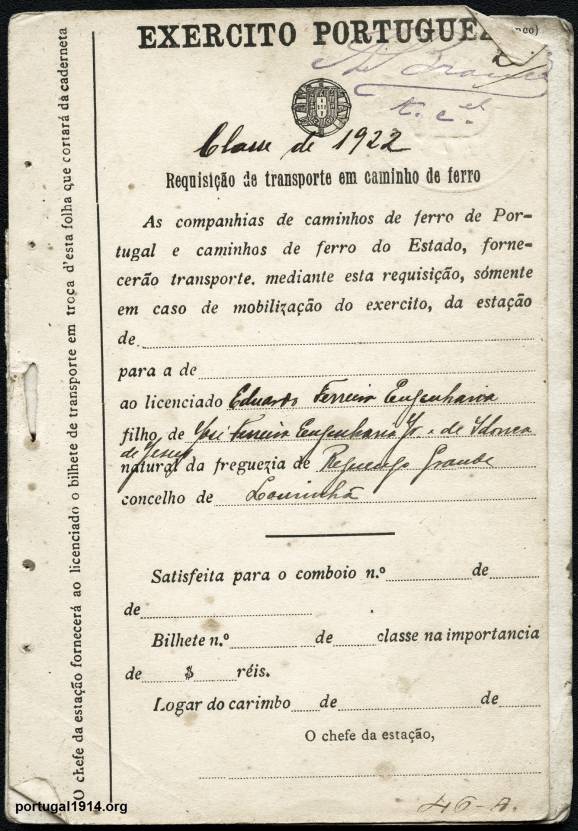 EXERCITO PORTUGUEZ
Classe de 1922
Requisição de transporte em caminho de ferro
As companhias de caminhos de ferro de Por-
tugal e caminhos de ferro do Estado, forne-
cerão transporte. mediante esta requisição, sómente
em caso de mobilização do exercito, da estação
de
para a de
ao licenciado Eduardo Ferreira Engenharia
filho de José Ferreira Engenharia Jr e de Idonea
de Jesus
natural da freguezia de Reguengo Grande
concelho de Lourinhã
Satisfeita para o comboio n.º de
de
Bilhete n.º de classe na importancia
de $ réis.
Logar do carimbo de de
O chefe da estação,
46-A.
O chefe da estação fornecerá ao licenciado o bilhete de transporte em troça d'esta folha que cortará da caderneta
portugal1914.org